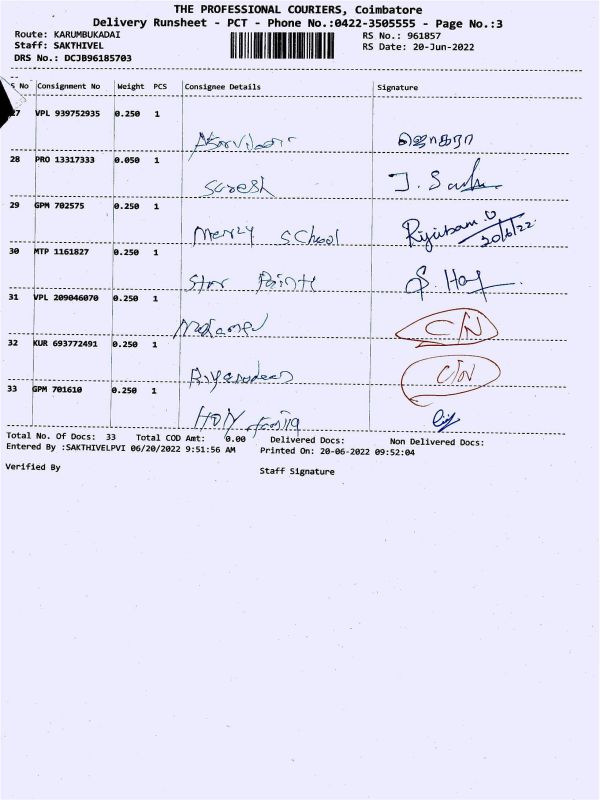 THE PROFESSIONAL COURIERS, Coimbatore
Delivery Runsheet - PCT - Phone No.:0422-3505555 - Page No.:3
Route: KARUMBUKADAI RS No.: 961857
Staff: SAKTHIVEL RS Date: 20-Jun-2022
DRS No.: DCJB96185703
S No Consignment No Weight PCS Consignee Details Signature
27 VPL 939752935 0.250 1
28 PRO 13317333 0.050 1
Suresh
29 GPM 702575 0.250 1
Mercy School 20/6/22
30 MTP 1161827 0.250 1
Star Points
31 VPL 209046070 0.250 1
Mohamed C/N
32 KUR 693772491 0.250 1
C/N
33 GPM 701610 0.250 1
Holy
Total No. Of Docs: 33 Total COD Amt: 0.00 Delivered Docs: Non Delivered Docs:
Entered By :SAKTHIVELPVI 06/20/2022 9:51:56 AM Printed On: 20-06-2022 09:52:04
Verified By Staff Signature